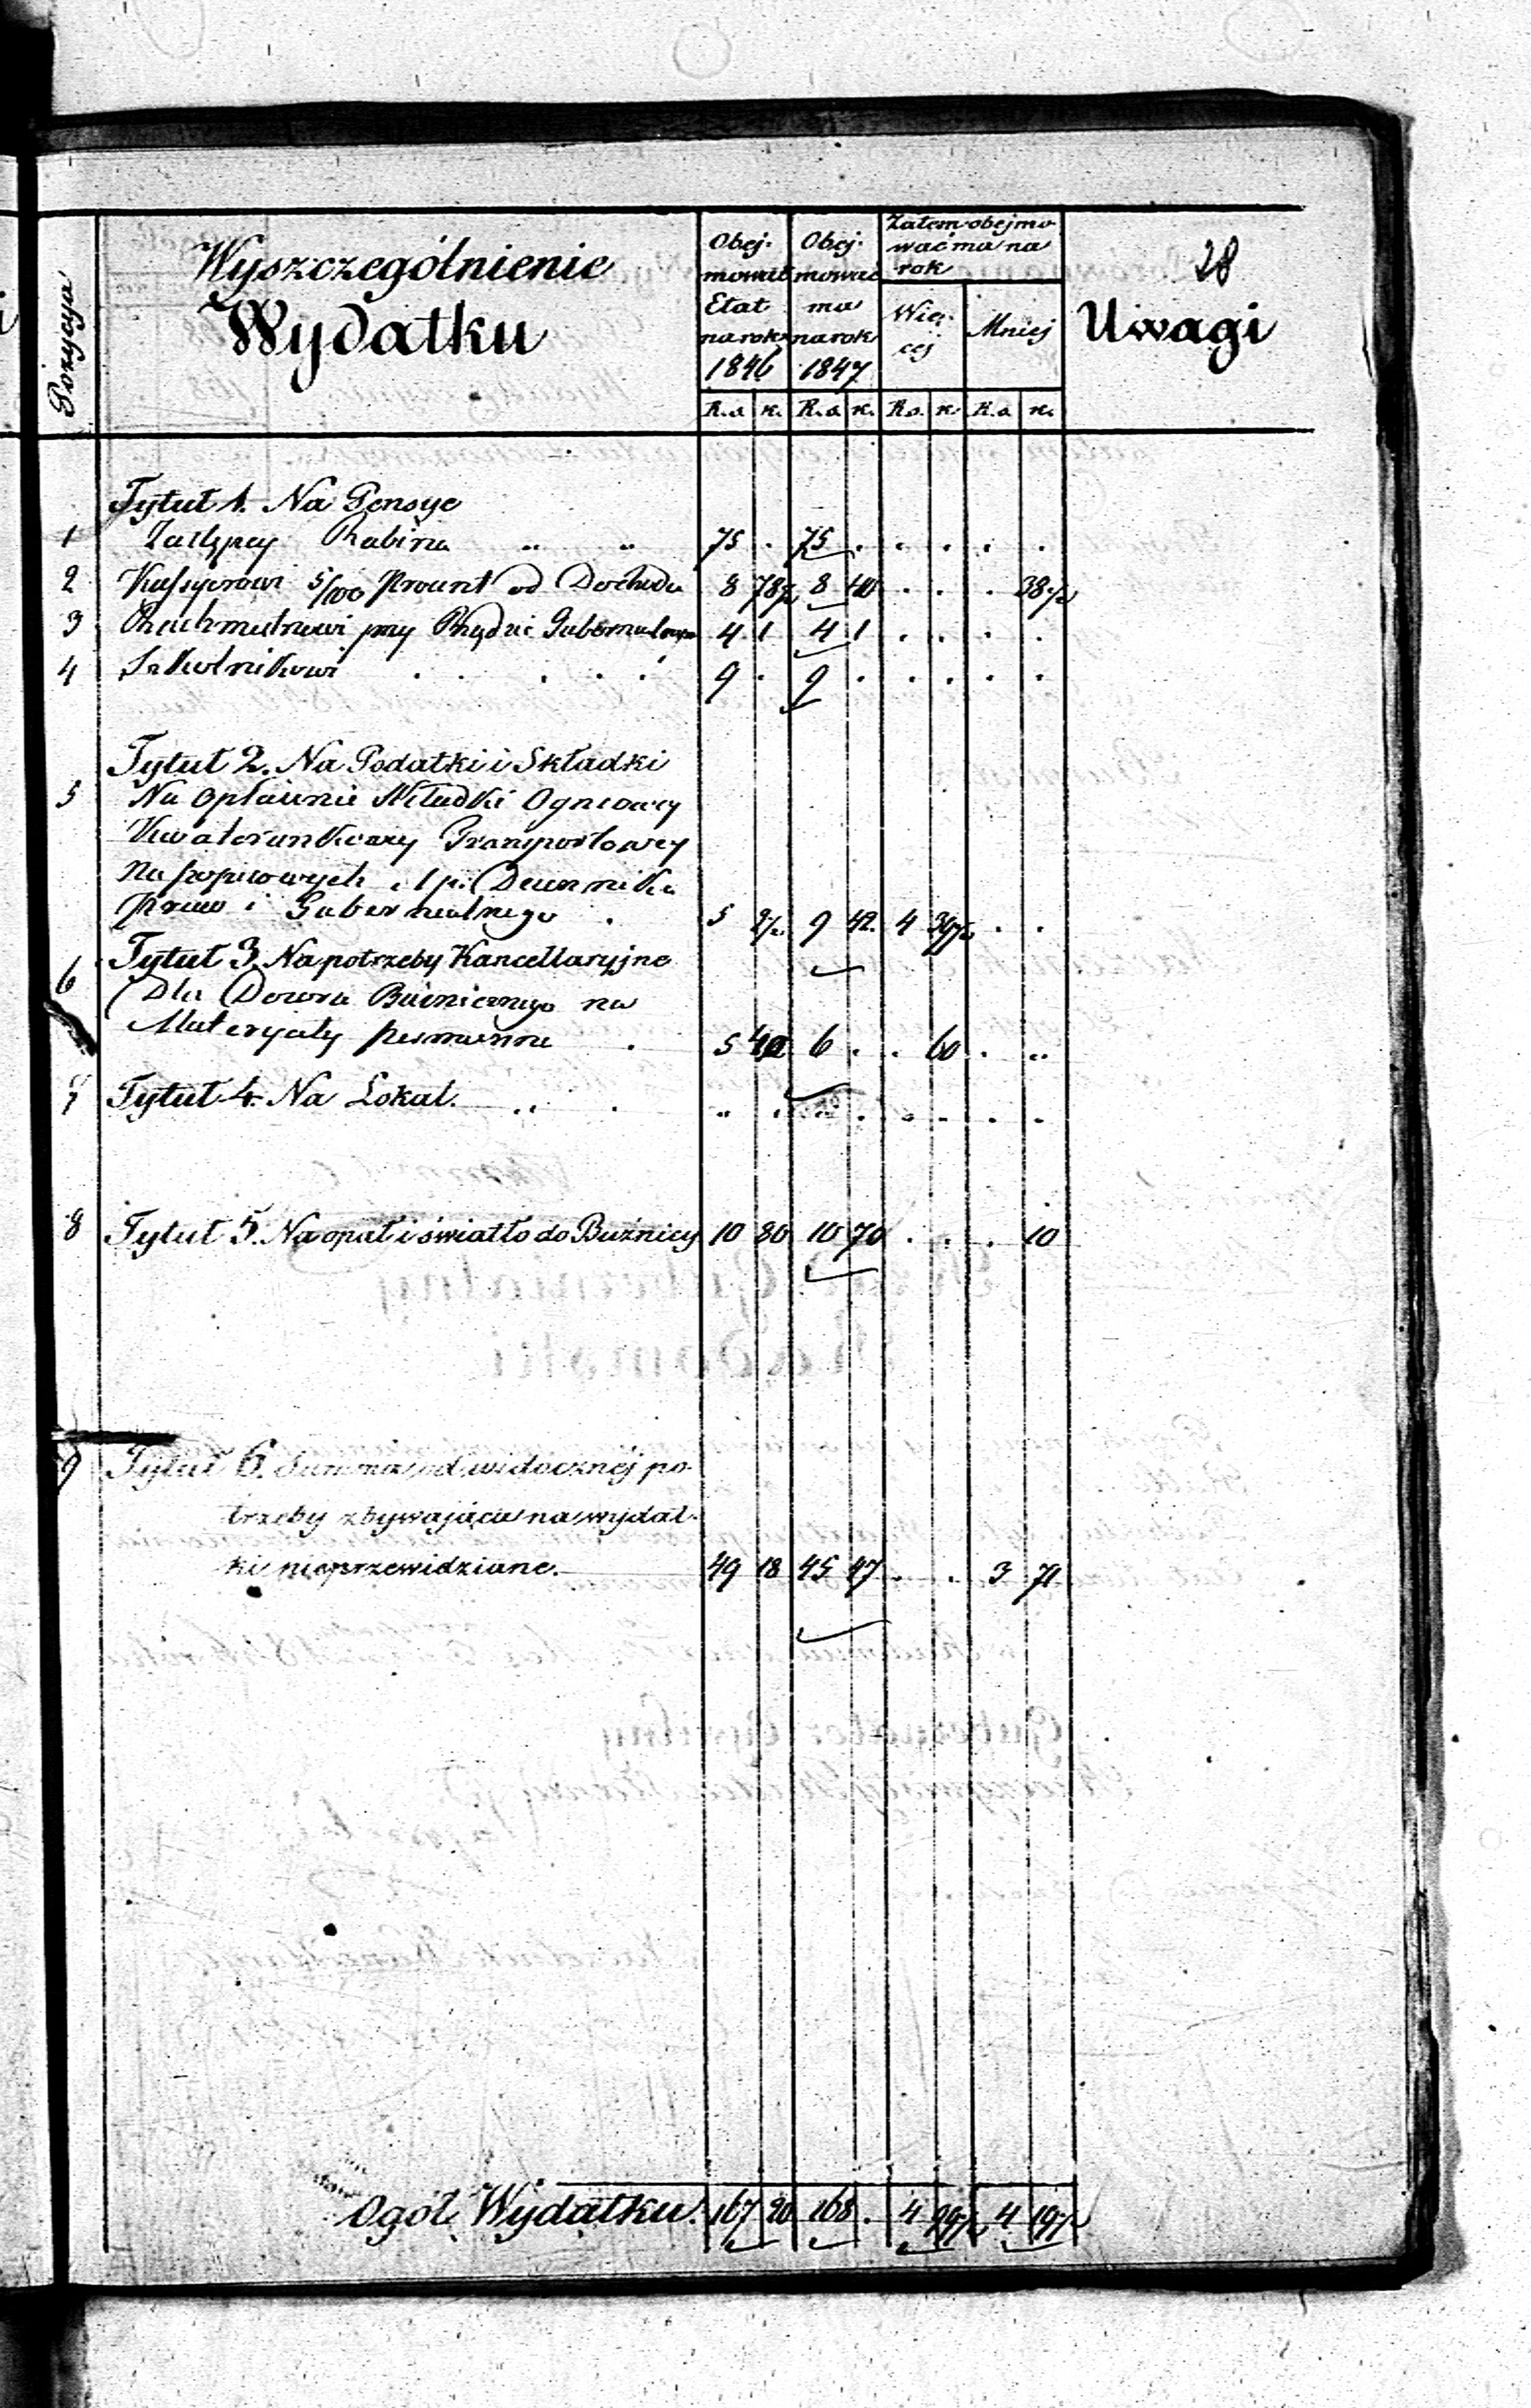 28
Pozycya
Wyszczególnienie
Wydatku
Obej-
mował
Etat
na rok
1846
Obej-
mować
ma
na rok
1847
Zatem obejmo
wać ma na
rok
Wię-
cej
Mniej
Uwagi
R.s. k. R.s. k. R.s. k. R.s. k.
Tytuł 1. Na Pensye
1 Zastępcy Rabina „ „ 75 . 75 . . . . .
2 Kassyerowi 5/100 Procent od Dochodu 8 78½ 8 40 . . . 38½
3 Rachmistrzowi przy Rządzie Gubernialnym 4 1 4 1 . . . .
4 Szkolnikowi . . . . . 9 . 9 . . . . .
Tytuł 2. Na Podatki i Składki
5 Na opłacenie Składki Ogniowey
Kwaterunkowey Transportowey
Na popisowych i Dziennika
Praw i Gubernialnego . 5 2½ 9 42 4 39½ . .
Tytuł 3. Na potrzeby Kancellaryjne
6 Dla Dozoru Bużnicznego na
Materyały piśmienne . 5 40 6 . . 60 . „
7 Tytuł 4. Na Lokal. „ . „ . „ . . . . .
8 Tytuł 5. Na opał i światło do Bużnicy 10 80 10 70 . . . 10
9 Tytuł 6. Summa od widocznéj po-
trzeby zbywająca na wydat-
ki nieprzewidziane. 49 18 45 47 . . 3 71
Ogół Wydatku. 167 20 168 . 4 99½ 4 19½